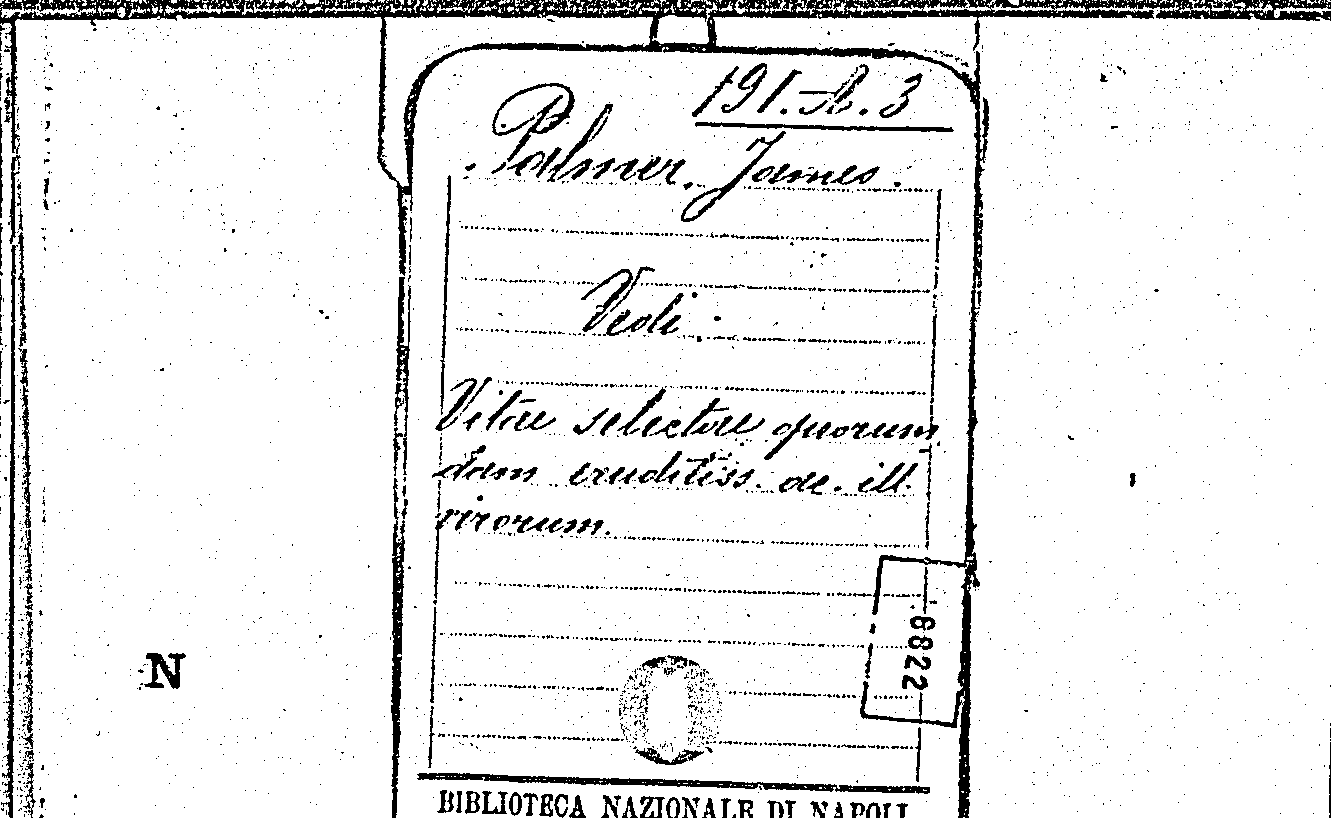 191.A.3
Palmer, James.
Vedi.
Vitae selectae quorum
dam eruditiss. ac. ill.
virorum.
6822
N
BIBLIOTECA NAZIONALE DI NAPOLI